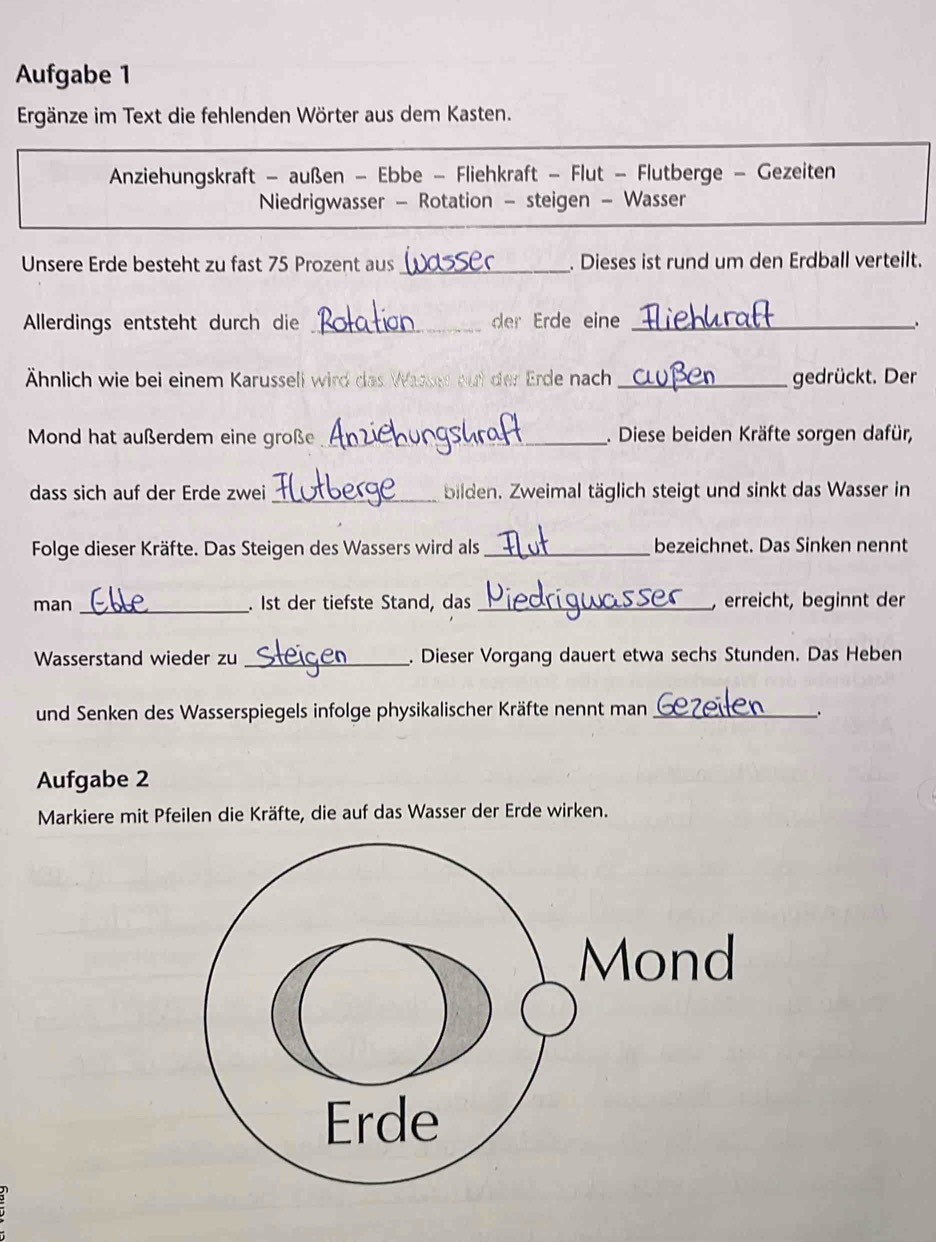 Aufgabe 1
Ergänze im Text die fehlenden Wörter aus dem Kasten.
Anziehungskraft – außen – Ebbe – Fliehkraft – Flut – Flutberge – Gezeiten
Niedrigwasser – Rotation – steigen – Wasser
Unsere Erde besteht zu fast 75 Prozent aus Wasser. Dieses ist rund um den Erdball verteilt.
Allerdings entsteht durch die Rotation der Erde eine Fliehkraft.
Ähnlich wie bei einem Karussell wird das Wasser auf der Erde nach außen gedrückt. Der
Mond hat außerdem eine große Anziehungskraft. Diese beiden Kräfte sorgen dafür,
dass sich auf der Erde zwei Flutberge bilden. Zweimal täglich steigt und sinkt das Wasser in
Folge dieser Kräfte. Das Steigen des Wassers wird als Flut bezeichnet. Das Sinken nennt
man Ebbe. Ist der tiefste Stand, das Niedrigwasser, erreicht, beginnt der
Wasserstand wieder zu steigen. Dieser Vorgang dauert etwa sechs Stunden. Das Heben
und Senken des Wasserspiegels infolge physikalischer Kräfte nennt man Gezeiten.
Aufgabe 2
Markiere mit Pfeilen die Kräfte, die auf das Wasser der Erde wirken.
Mond
Erde